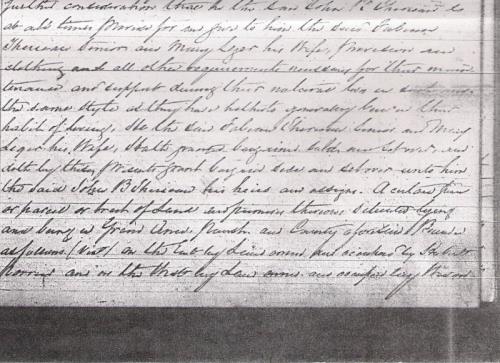 further consideration there he the said John B Theriau
at all times provide for and give to him the said Fabien
Theriau Senior and Mary Leger his Wife, provision and
clothing and all other requirements necessary for their main
tenance and support during their natural lives in
the same style as they have hitherto generally been in the
habit of living; He the said Fabien Theriau Senior and Mary
Leger his Wife, Hath granted bargained and
doth by these presents grant bargain and set over unto him
the said John B Theriau his heirs and assigns. A certain
or parcel or tract of Land and premises thereon situated lying
and being in Grand Parish and County aforesaid
as follows (Viz) on the East by Land owned and occupied by
and on the West by Land owned and occupied by